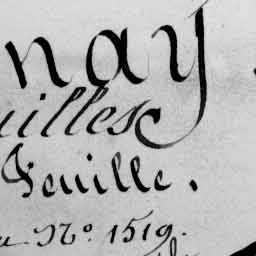 nay.
uilles
Feuille.
a. Nº. 1519.